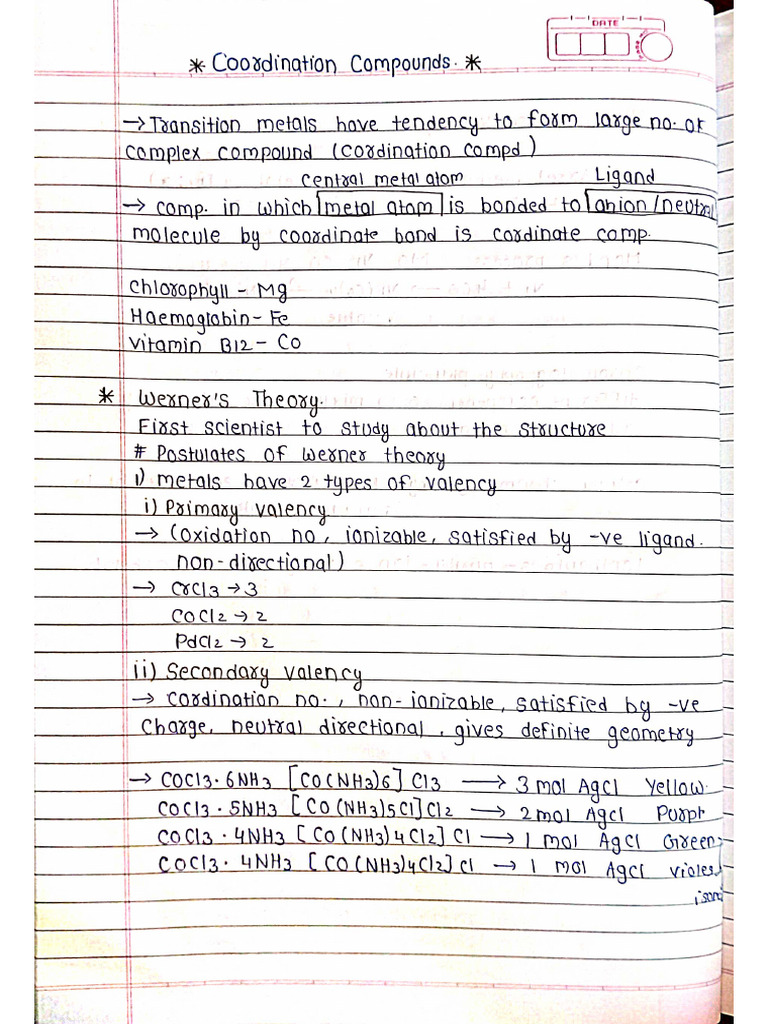 DATE
* Coordination Compounds. *
→ Transition metals have tendency to form large no. of
complex compound (cordination compd)
central metal atom Ligand
→ comp. in which metal atom is bonded to anion/neutral
molecule by coordinate bond is cordinate comp.
Chlorophyll - Mg
Haemoglobin - Fe
Vitamin B12 - Co
* Werner's Theory.
First scientist to study about the structure
# Postulates of Werner theory
1) Metals have 2 types of valency
i) Primary valency
→ (Oxidation no, ionizable, satisfied by -ve ligand.
non-directional)
→ CrCl3 → 3
COCl2 → 2
PdCl2 → 2
ii) Secondary valency
→ cordination no., non-ionizable, satisfied by -ve
Charge, neutral directional, gives definite geometry
→ COCl3.6NH3 [CO(NH3)6] Cl3 → 3 mol AgCl Yellow.
COCl3.5NH3 [CO(NH3)5Cl]Cl2 → 2 mol AgCl Purpl
COCl3.4NH3 [CO(NH3)4Cl2] Cl → 1 mol AgCl Green
COCl3.4NH3 [CO(NH3)4Cl2] Cl → 1 mol AgCl Violet